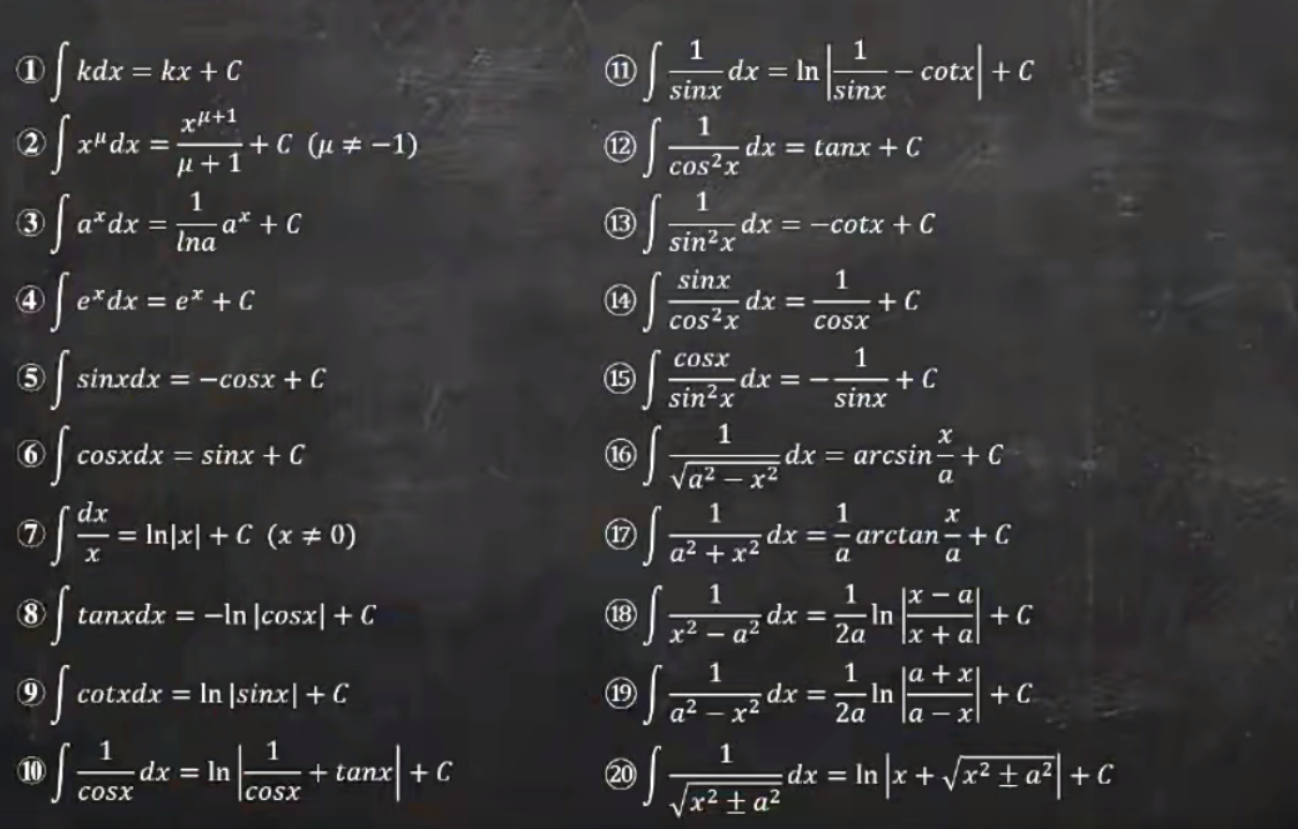 ① ∫ kdx = kx + C
② ∫ x^μ dx = x^(μ+1)/(μ + 1) + C (μ ≠ −1)
③ ∫ a^x dx = (1/lna) a^x + C
④ ∫ e^x dx = e^x + C
⑤ ∫ sinxdx = −cosx + C
⑥ ∫ cosxdx = sinx + C
⑦ ∫ dx/x = ln|x| + C (x ≠ 0)
⑧ ∫ tanxdx = −ln |cosx| + C
⑨ ∫ cotxdx = ln |sinx| + C
⑩ ∫ 1/cosx dx = ln |1/cosx + tanx| + C
⑪ ∫ 1/sinx dx = ln |1/sinx − cotx| + C
⑫ ∫ 1/cos²x dx = tanx + C
⑬ ∫ 1/sin²x dx = −cotx + C
⑭ ∫ sinx/cos²x dx = 1/cosx + C
⑮ ∫ cosx/sin²x dx = −1/sinx + C
⑯ ∫ 1/√(a² − x²) dx = arcsin x/a + C
⑰ ∫ 1/(a² + x²) dx = (1/a) arctan x/a + C
⑱ ∫ 1/(x² − a²) dx = (1/2a) ln |(x − a)/(x + a)| + C
⑲ ∫ 1/(a² − x²) dx = (1/2a) ln |(a + x)/(a − x)| + C
⑳ ∫ 1/√(x² ± a²) dx = ln |x + √(x² ± a²)| + C